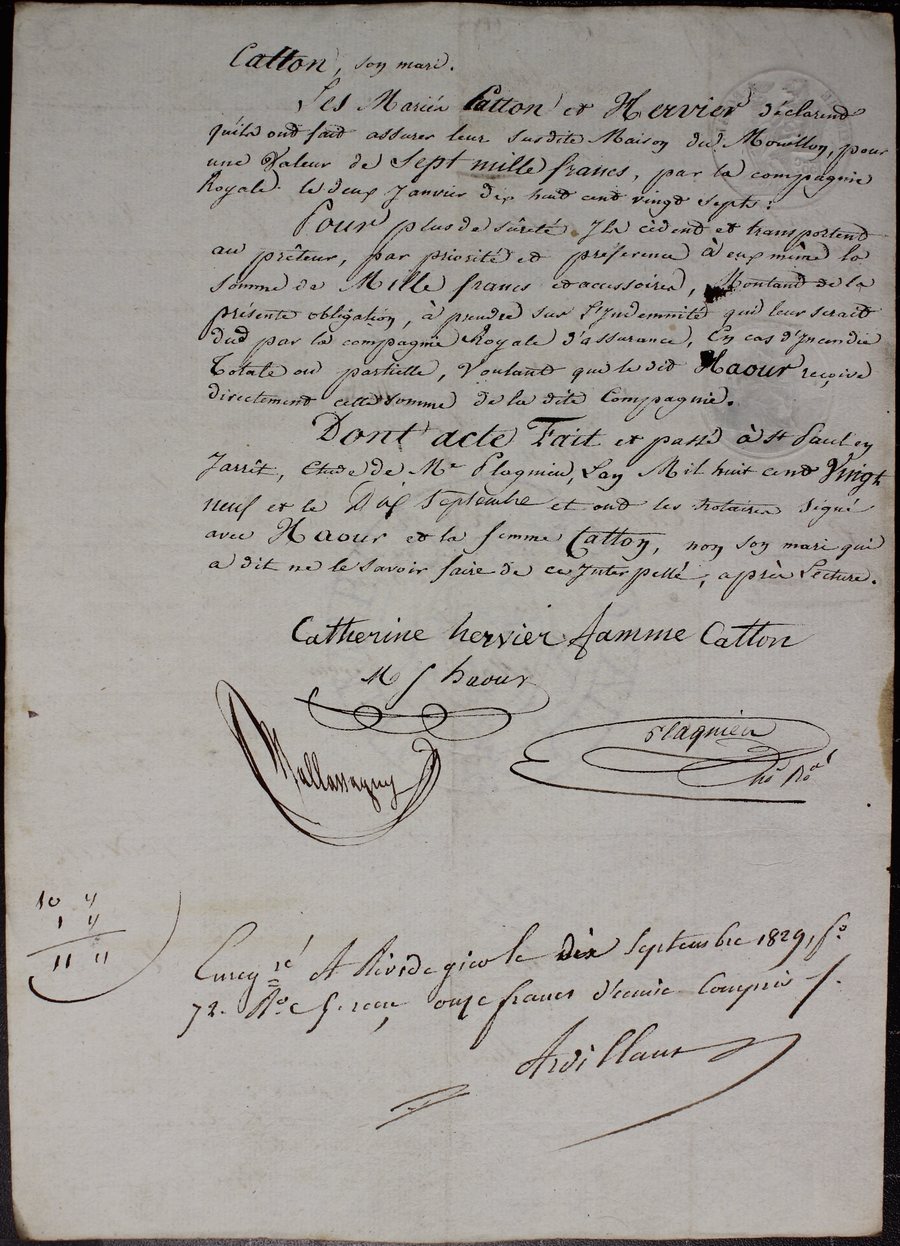 Catton, son mari.
Les Mariés Catton et Hervier déclarend
qu'ils ond fait assurer leur susdite Maison du Mouillon, pour
une Valeur de Sept mille francs, par la compagnie
Royale le deux Janvier dix huit cend vingt sept.
Pour plus de sûreté Ils cèdend et transportend
au prêteur, par priorité et préférence à eux même la
somme de Mille francs et accessoires, Montand de la
présente obligation, à prendre sur l'Indemnité qui leur serait
due par la compagnie Royale d'assurance, En cas d'Incendie
Totale ou partielle, Voulant que le dit Haour reçoive
directement cette somme de la dite Compagnie.
Dont acte Fait et passé à St Paul en
Jarrêt, Etude de Me Plagnieu, L'an Mil huit cend Vingt
neuf et le Dix Septembre et ond les notaires signé
avec Haour et la femme Catton, non son mari qui
a dit ne le savoir faire de ce Interpellé, après Lecture.
Catherine hervier famme Catton
M J haour
Mallassagny
Plagnieu
10 "
1 "
11 "
Enregré A Rivedegier le dix Septembre 1829, fo
72. Ro C 5. reçu onze francs décime Compris
Ardillaux